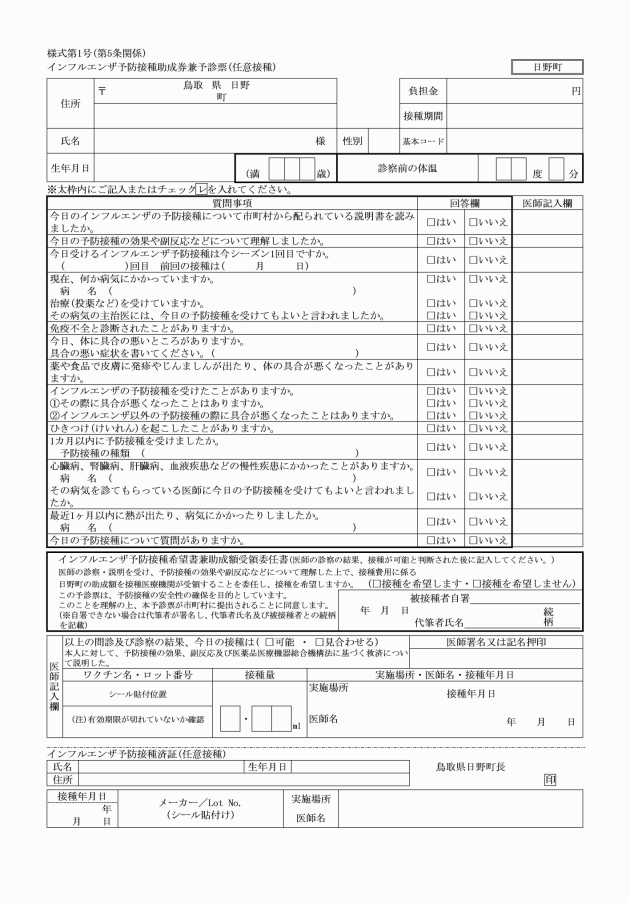 様式第1号(第5条関係)
インフルエンザ予防接種助成券兼予診票(任意接種)
日野町
住所
〒
鳥取　県　日野
町
負担金
円
接種期間
氏名
様
性別
基本コード
生年月日
(満　歳)
診察前の体温
度　分
※太枠内にご記入またはチェックレを入れてください。
質問事項　回答欄　医師記入欄
今日のインフルエンザの予防接種について市町村から配られている説明書を読み
ましたか。
□はい　□いいえ
今日の予防接種の効果や副反応などについて理解しましたか。　□はい　□いいえ
今日受けるインフルエンザ予防接種は今シーズン1回目ですか。
(　　)回目　前回の接種は(　　月　　日)
□はい　□いいえ
現在、何か病気にかかっていますか。　□はい　□いいえ
病　名　(　　)
治療(投薬など)を受けていますか。　□はい　□いいえ
その病気の主治医には、今日の予防接種を受けてもよいと言われましたか。　□はい　□いいえ
免疫不全と診断されたことがありますか。　□はい　□いいえ
今日、体に具合の悪いところがありますか。
具合の悪い症状を書いてください。(　　)
□はい　□いいえ
薬や食品で皮膚に発疹やじんましんが出たり、体の具合が悪くなったことがあり
ますか。
□はい　□いいえ
インフルエンザの予防接種を受けたことがありますか。　□はい　□いいえ
①その際に具合が悪くなったことはありますか。　□はい　□いいえ
②インフルエンザ以外の予防接種の際に具合が悪くなったことはありますか。　□はい　□いいえ
ひきつけ(けいれん)を起こしたことがありますか。　□はい　□いいえ
1カ月以内に予防接種を受けましたか。
予防接種の種類　(　　)
□はい　□いいえ
心臓病、腎臓病、肝臓病、血液疾患などの慢性疾患にかかったことがありますか。
病　名　(　　)
□はい　□いいえ
その病気を診てもらっている医師に今日の予防接種を受けてもよいと言われまし
たか。
□はい　□いいえ
最近1ヶ月以内に熱が出たり、病気にかかったりしましたか。
病　名　(　　)
□はい　□いいえ
今日の予防接種について質問がありますか。　□はい　□いいえ
インフルエンザ予防接種希望書兼助成額受領委任書(医師の診察の結果、接種が可能と判断された後に記入してください。)
医師の診察・説明を受け、予防接種の効果や副反応などについて理解した上で、接種費用に係る
日野町の助成額を接種医療機関が受領することを委任し、接種を希望しますか。　(□接種を希望します・□接種を希望しません)
この予診票は、予防接種の安全性の確保を目的としています。
このことを理解の上、本予診票が市町村に提出されることに同意します。
(※自署できない場合は代筆者が署名し、代筆者氏名及び被接種者との続柄
を記載)
被接種者自署
年　月　日
代筆者氏名
続
柄
医師記入欄
以上の問診及び診察の結果、今日の接種は(　□可能　・　□見合わせる)
本人に対して、予防接種の効果、副反応及び医薬品医療機器総合機構法に基づく救済につい
て説明した。
医師署名又は記名押印
ワクチン名・ロット番号　接種量　実施場所・医師名・接種年月日
シール貼付位置
(注)有効期限が切れていないか確認
・　ml
実施場所
接種年月日
医師名
年　月　日
インフルエンザ予防接種済証(任意接種)
氏名　生年月日
住所
鳥取県日野町長
印
接種年月日
年
月　日
メーカー／Lot No.
(シール貼付け)
実施場所
医師名